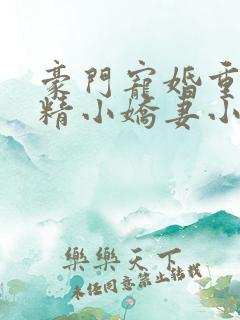 豪門寵婚重
精小嬌妻小
樂樂天下
未經同意禁止轉載